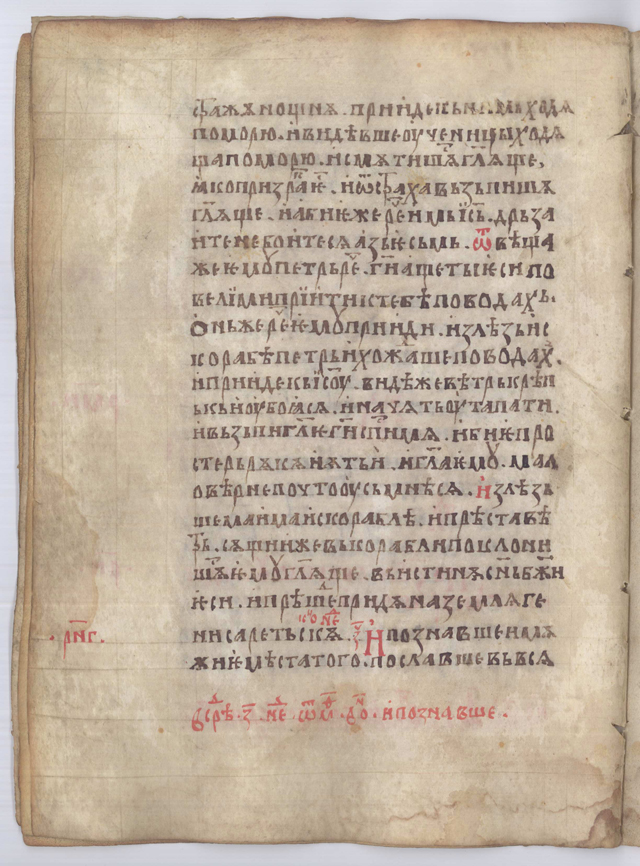 стражѫ нощиѧ. прииде къ ни. ходѧ
по морю. и видѣвше оученици ходѧ
ща по морю. и смѧтишѧ глѧще,
ꙗко призракь ѥ. и ѿ страха възьпишѧ
глѧще. и абиѥ же рече имь іс҃ъ. дръза
ите не боитесѧ азъ ѥсьмь. ѿвѣща
же ѥмоу петръ ре. г҃и аще ты ѥси по
вели ми пріити къ тебѣ по водахъ.
онъ же рече ѥмоу прииди. и излѣзъ ис
корабѣ петръ и хожаше по водах.
и прииде къ іс҃оу. видѣ же вѣтръ крѣп
ькъ и оубоꙗсѧ. и начѧтъ оутапати.
и възъпи глѧ г҃и сп҃и мѧ. и абиѥ про
стеръ рѫкѫ ѩтъ и. и гла ѥмоу. мал
овѣрне почто оусъмнѣсѧ. и злѣзъ
шема има ис кораблѣ. и прѣста вѣ
тръ. сѫщии же въ корабли поклони
шѧ ѥмоу глѧще. въ истинѫ с҃нъ б҃жи
ѥси. и прѣшедше придѫ на землѧ ге
нисаретьскѫ. И познавше и мѫ
жиѥ мѣста того. пославше въ всѧ
рн҃г.
срѣ. з. не. ѿ м. до. и познавше.